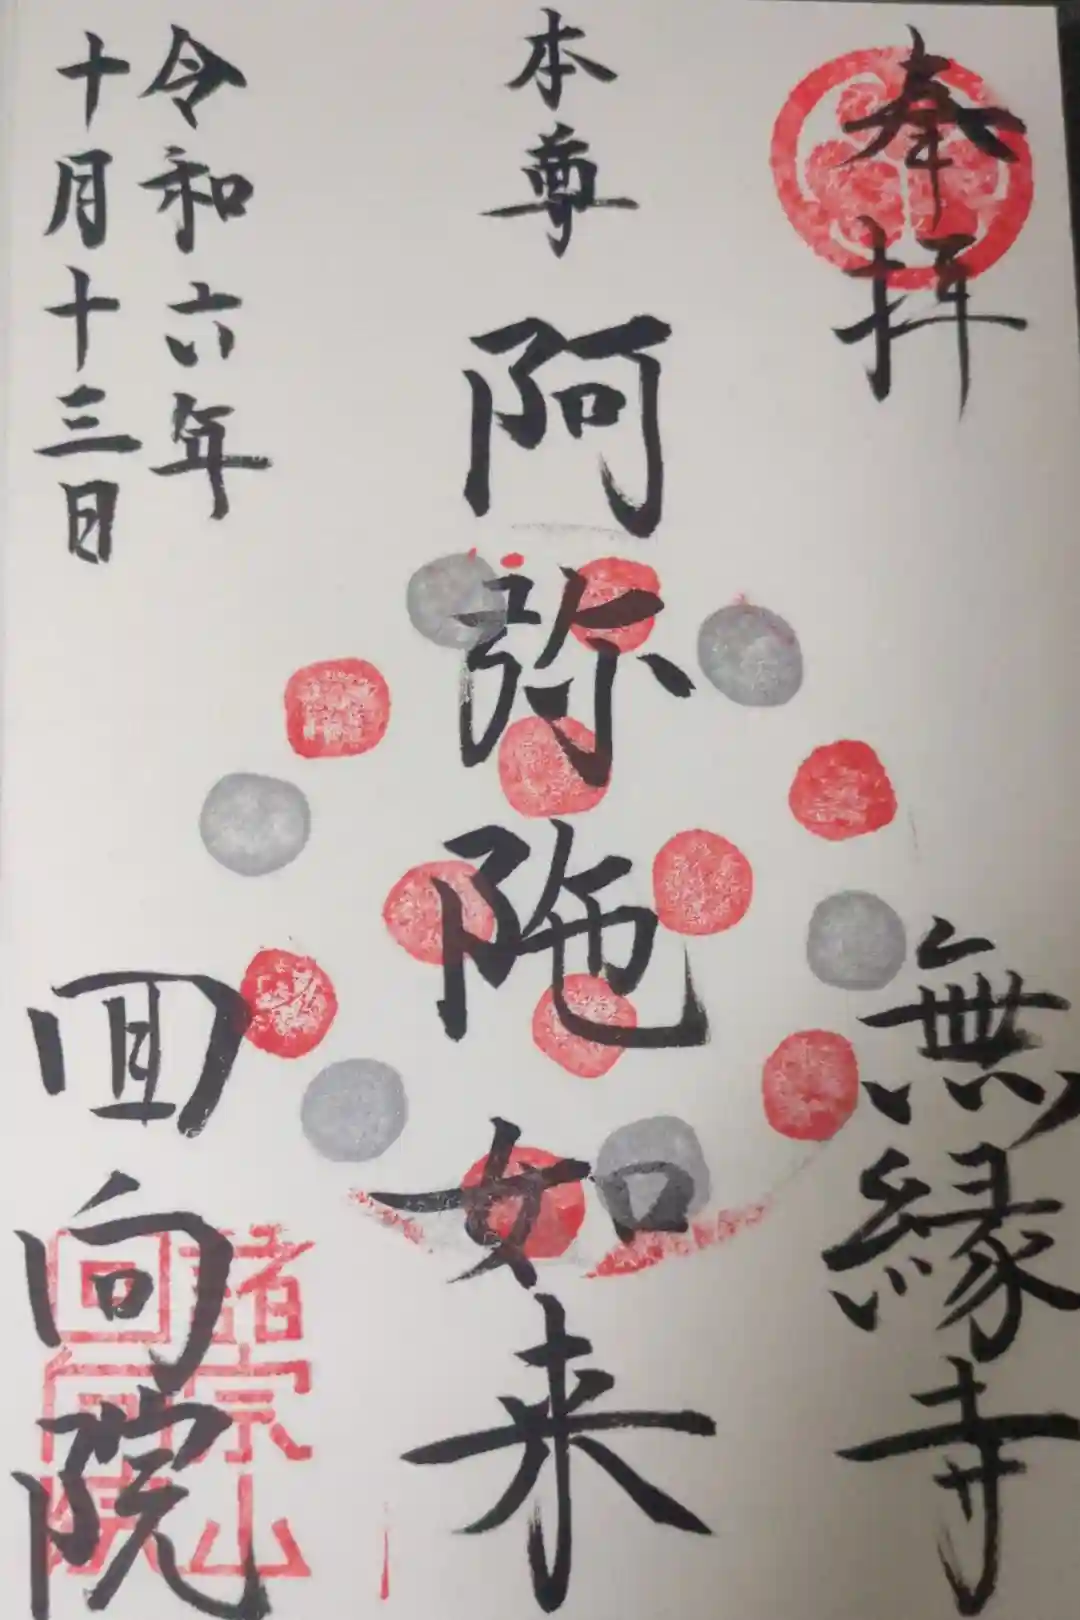 奉拝
無縁寺
本尊
阿弥陀如来
令和六年
十月十三日
回向院
諸宗山
回向院